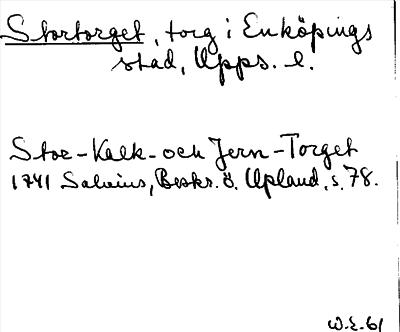 Stortorget, torg i Enköpings
stad, Upps. l.
Stor-Kalk- och Jern-Torget
1741 Salvius, Beskr. ö. Upland, s. 78.
W.E. 61